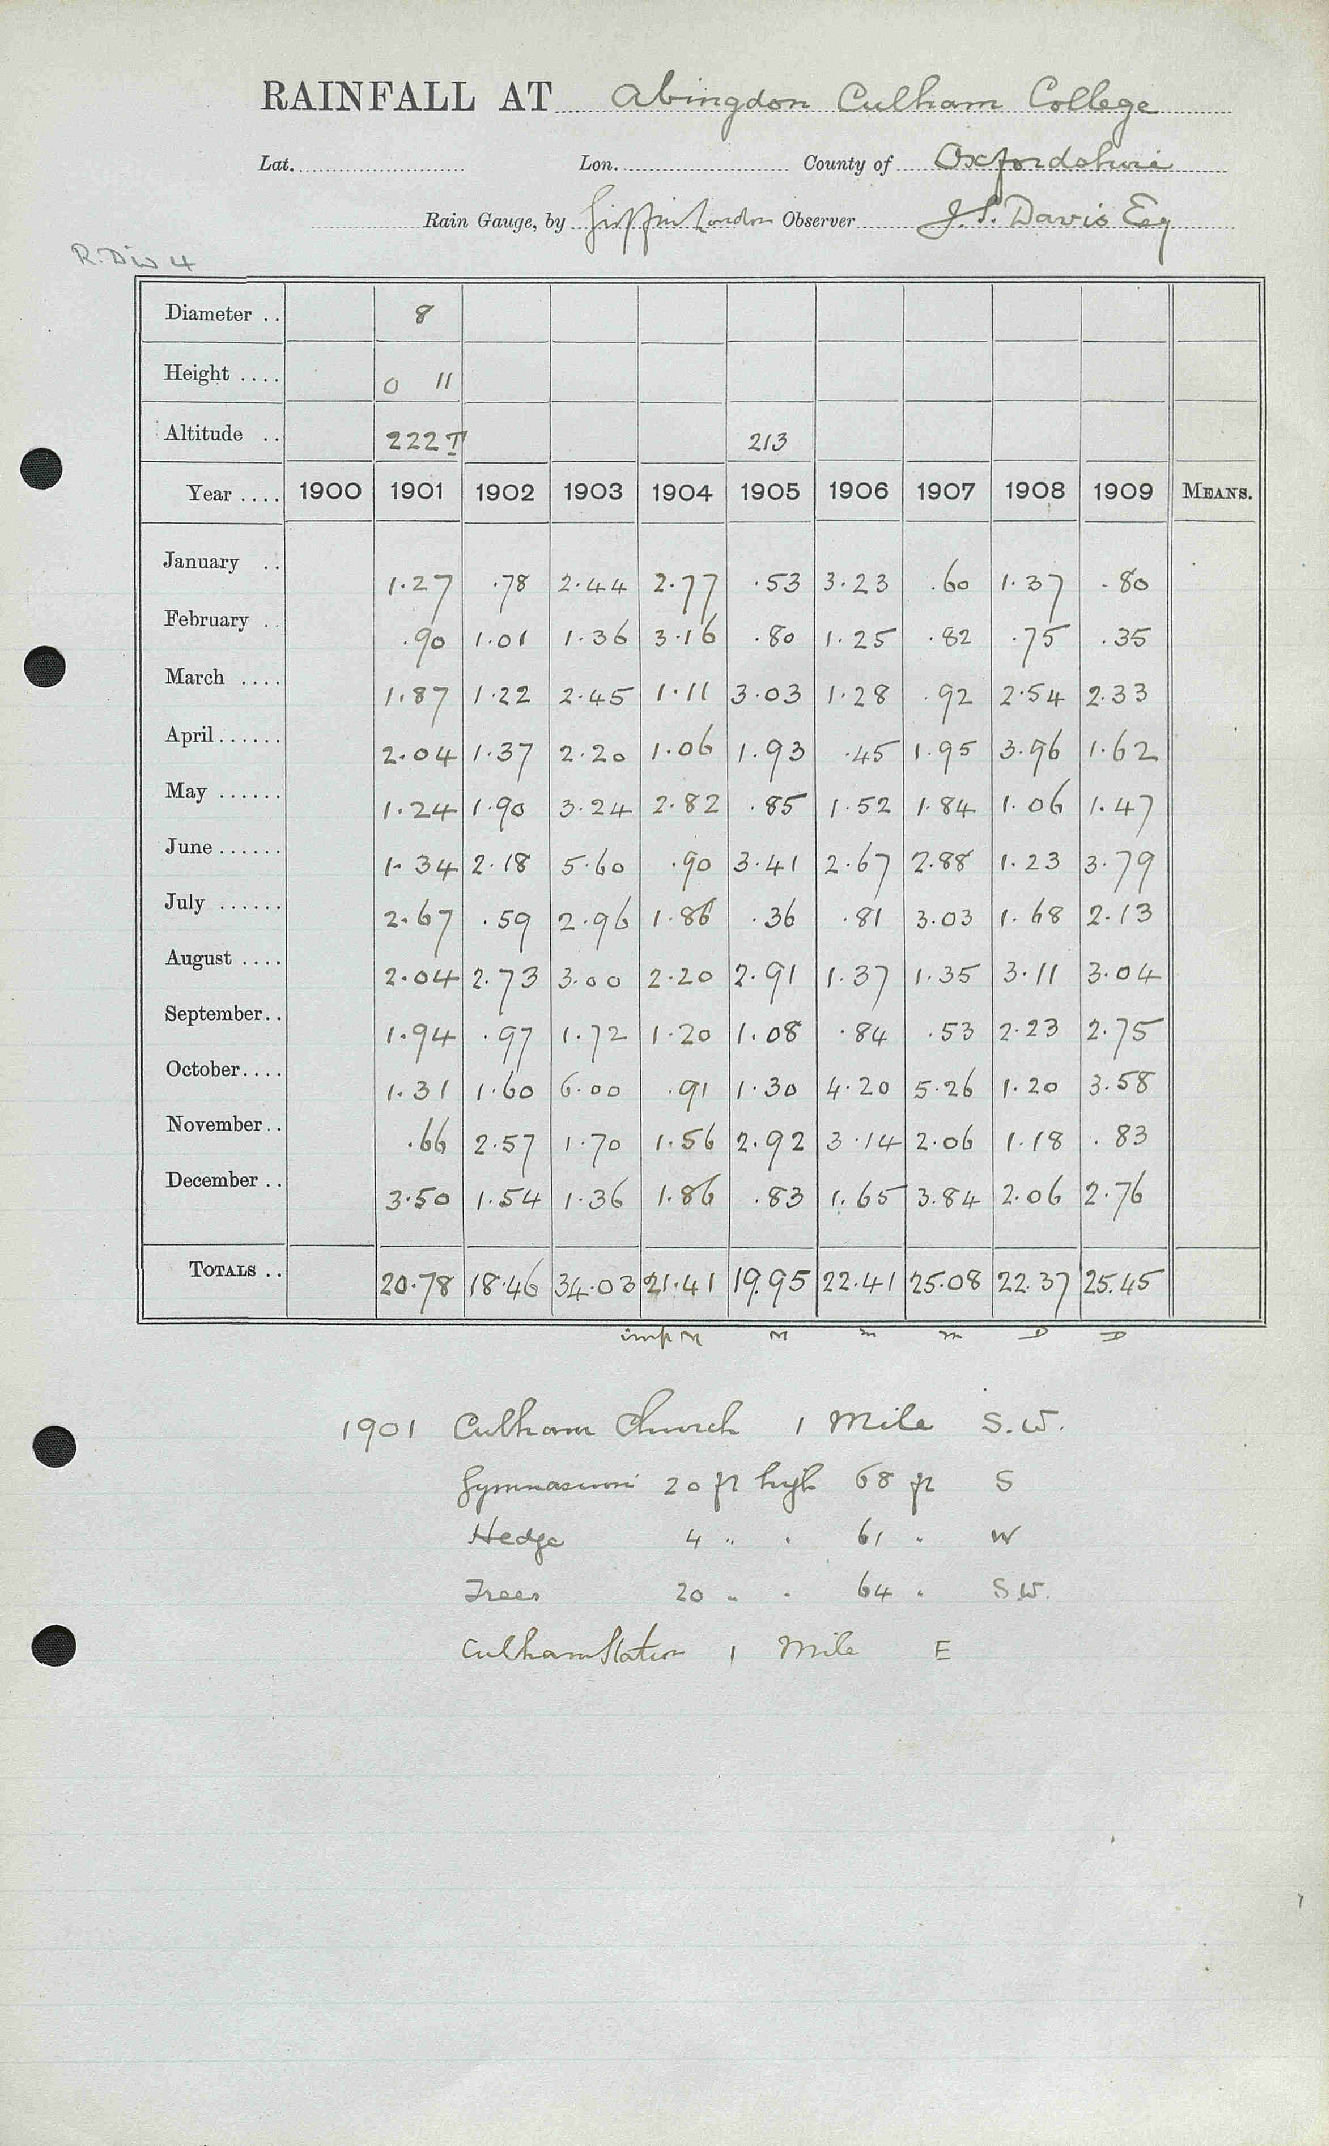 RAINFALL AT Abingdon Culham College
Lat. Lon. County of Oxfordshire
Rain Gauge, by Griffin London Observer J. S. Davis Esq
R. Div 4
Diameter .. 8
Height .... 0 11
Altitude .. 222 T 213
Year .... 1900 1901 1902 1903 1904 1905 1906 1907 1908 1909 MEANS.
January .. 1.27 .78 2.44 2.77 .53 3.23 .60 1.37 .80
February .. .90 1.01 1.36 3.16 .80 1.25 .82 .75 .35
March .... 1.87 1.22 2.45 1.11 3.03 1.28 .92 2.54 2.33
April...... 2.04 1.37 2.20 1.06 1.93 .45 1.95 3.96 1.62
May ...... 1.24 1.90 3.24 2.82 .85 1.52 1.84 1.06 1.47
June...... 1.34 2.18 5.60 .90 3.41 2.67 2.88 1.23 3.79
July ...... 2.67 .59 2.96 1.86 .36 .81 3.03 1.68 2.13
August .... 2.04 2.73 3.00 2.20 2.91 1.37 1.35 3.11 3.04
September.. 1.94 .97 1.72 1.20 1.08 .84 .53 2.23 2.75
October.... 1.31 1.60 6.00 .91 1.30 4.20 5.26 1.20 3.58
November.. .66 2.57 1.70 1.56 2.92 3.14 2.06 1.18 .83
December .. 3.50 1.54 1.36 1.86 .83 1.65 3.84 2.06 2.76
TOTALS .. 20.78 18.46 34.03 21.41 19.95 22.41 25.08 22.37 25.45
imp M M m m D D
1901 Culham Church 1 Mile S.W.
Gymnasium 20 ft high 68 ft S
Hedge 4 " " 61 " W
Trees 20 " " 64 " S.W.
Culham Station 1 Mile E